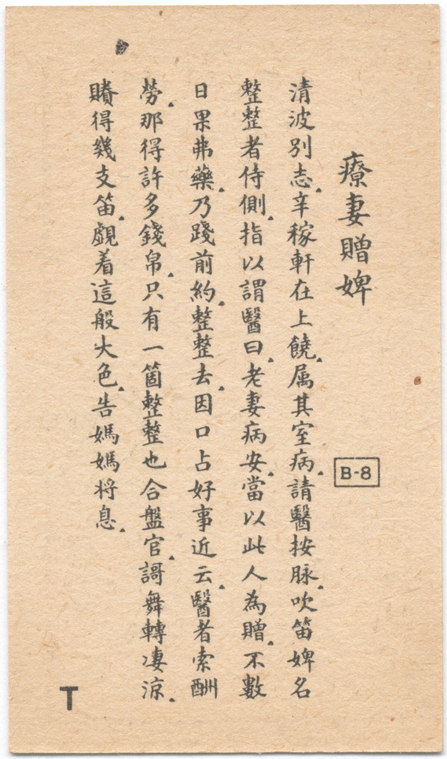 療妻贈婢
B-8
清波別志。辛稼軒在上饒。属其室病。請醫按脉。吹笛婢名
整整者侍側。指以謂醫曰。老妻病安。當以此人為贈。不數
日果弗藥。乃踐前約。整整去。因口占好事近云。醫者索酬
勞。那得許多錢帛。只有一箇整整也合盤官。謌舞轉凄涼。
賸得幾支笛。覷着這般大色。告媽媽将息。
T